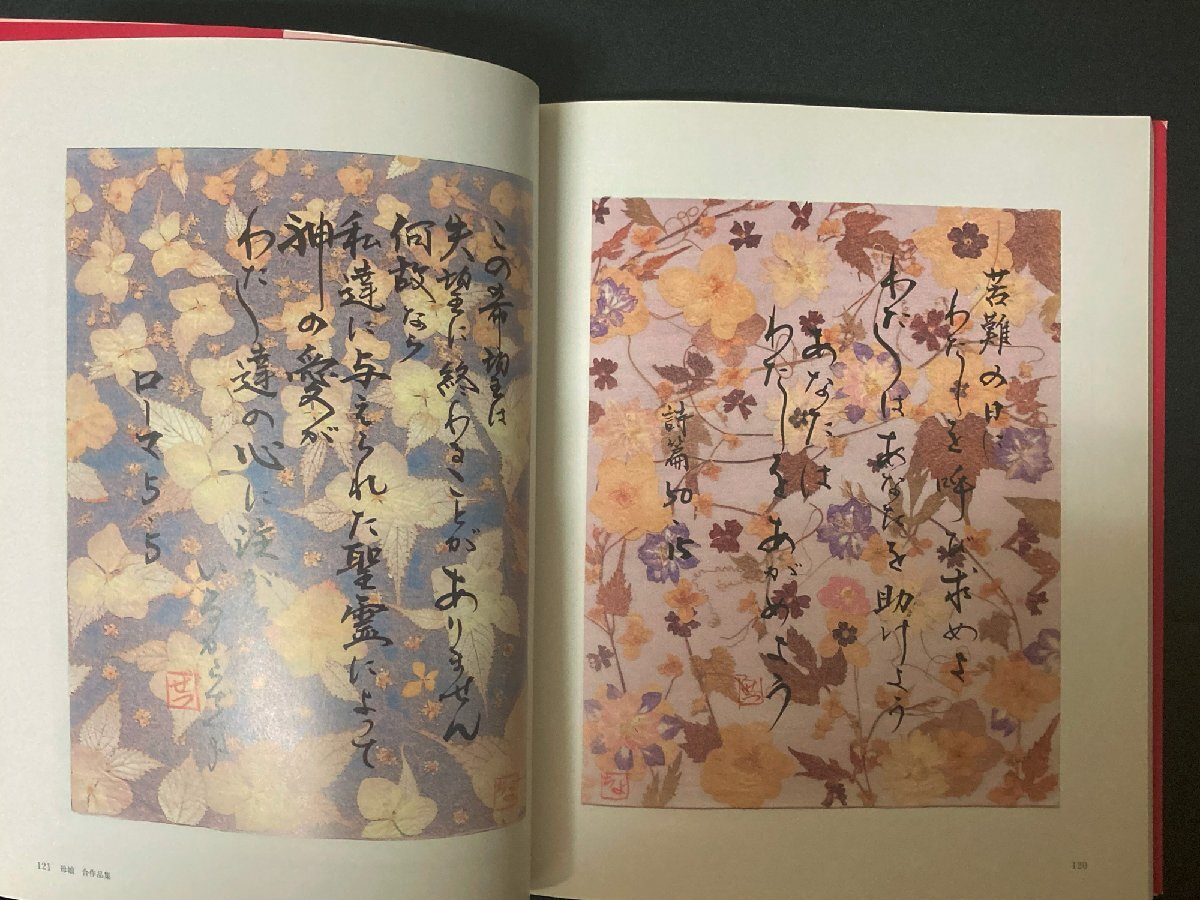 苦難の日に
わたしを呼び求めよ
わたしはあなたを助けよう
あなたは
わたしをあがめよう
詩篇50、15
せつ
120
この希望は
失望に終わることがありません
何故なら
私達に与えられた聖霊によって
神の愛が
わたし達の心に注が
いるから
ローマ5、5
せつ
121 母娘 合作品集